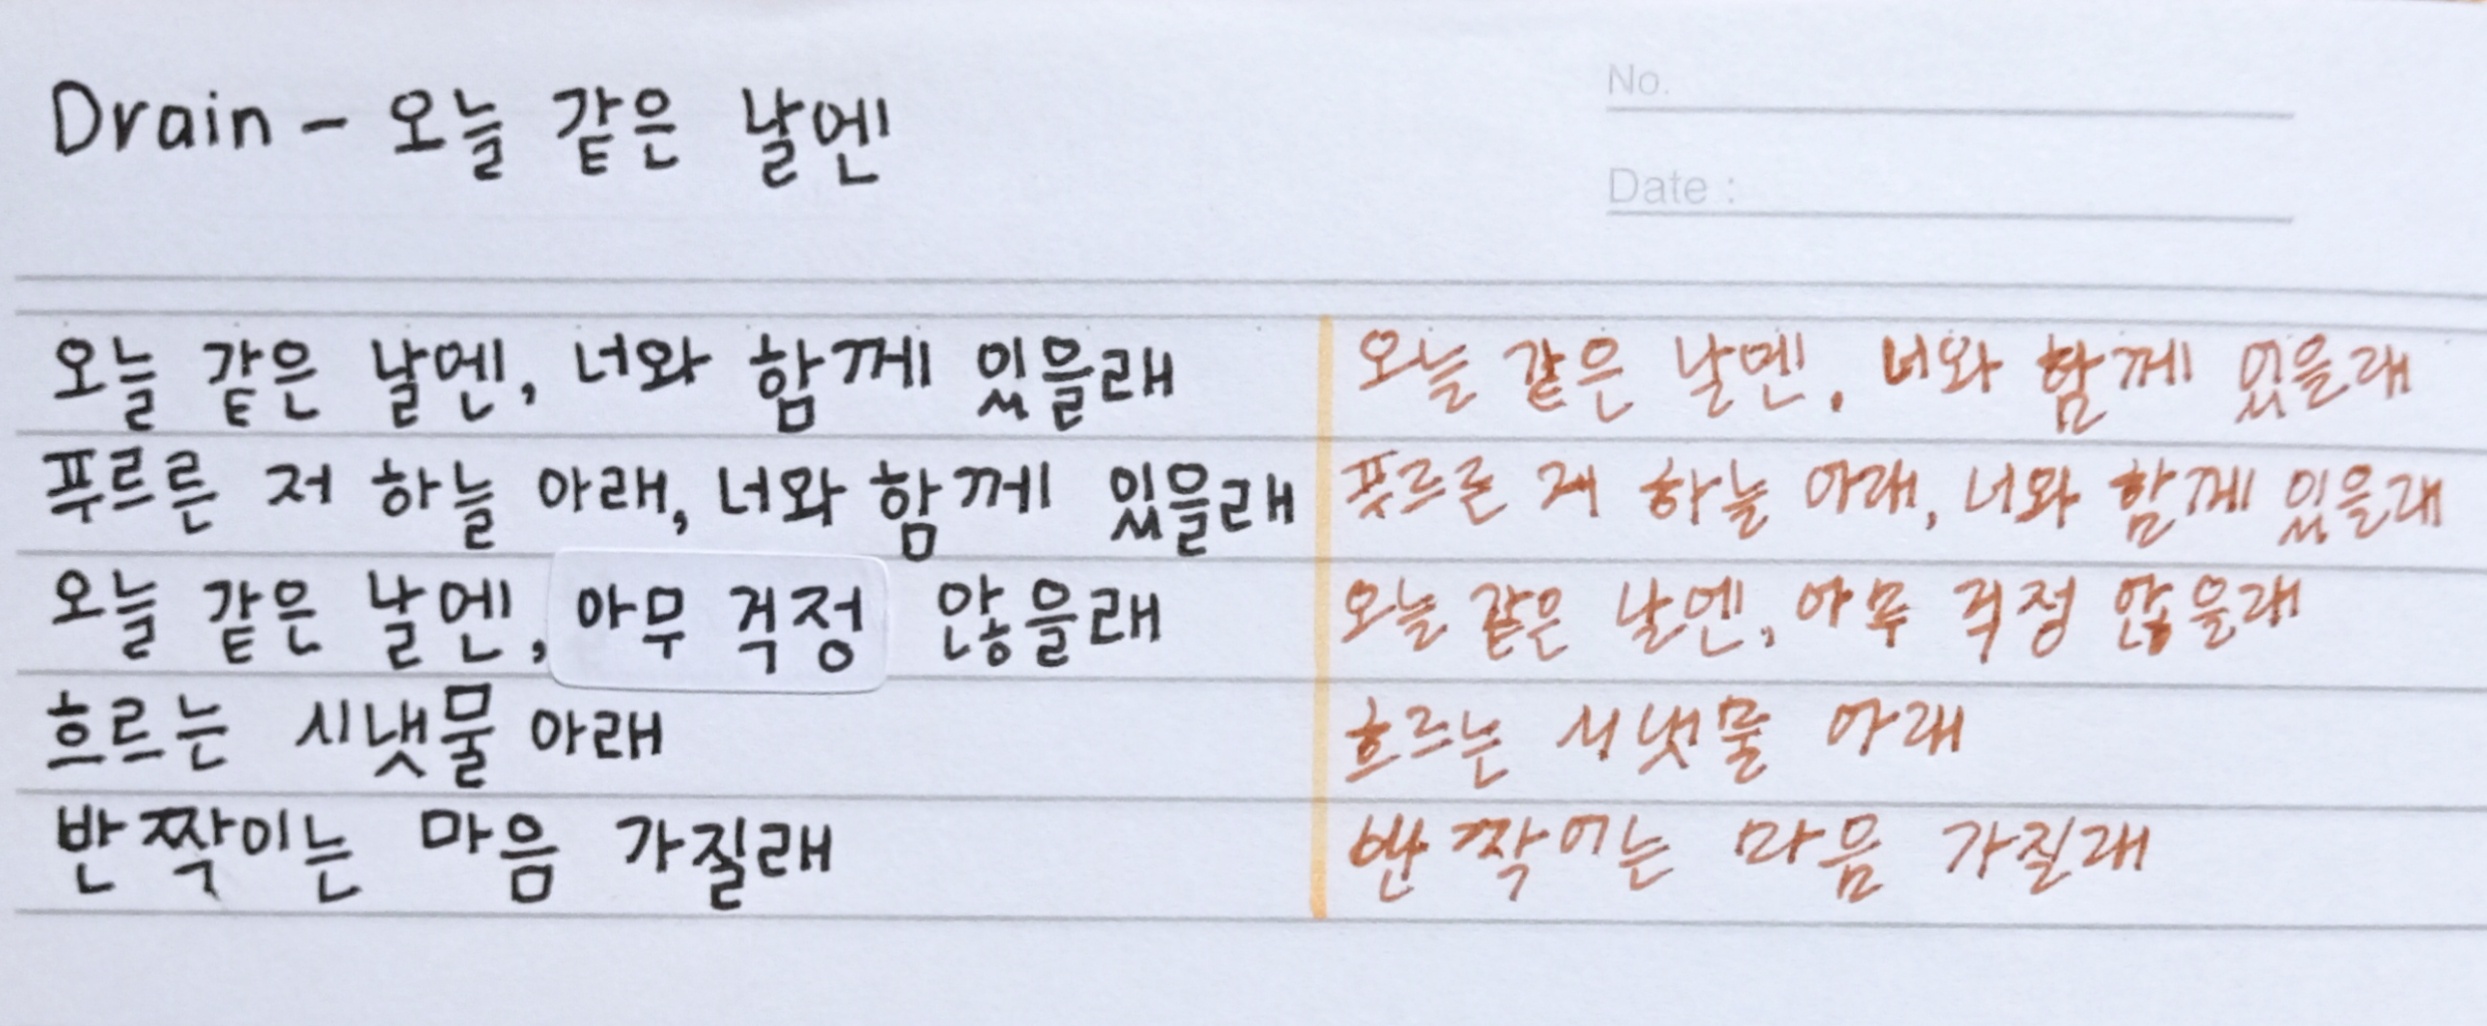 Drain - 오늘 같은 날엔
No.
Date :
오늘 같은 날엔, 너와 함께 있을래
푸르른 저 하늘 아래, 너와 함께 있을래
오늘 같은 날엔, 아무 걱정 않을래
흐르는 시냇물 아래
반짝이는 마음 가질래
오늘 같은 날엔, 너와 함께 있을래
푸르른 저 하늘 아래, 너와 함께 있을래
오늘 같은 날엔, 아무 걱정 않을래
흐르는 시냇물 아래
반짝이는 마음 가질래